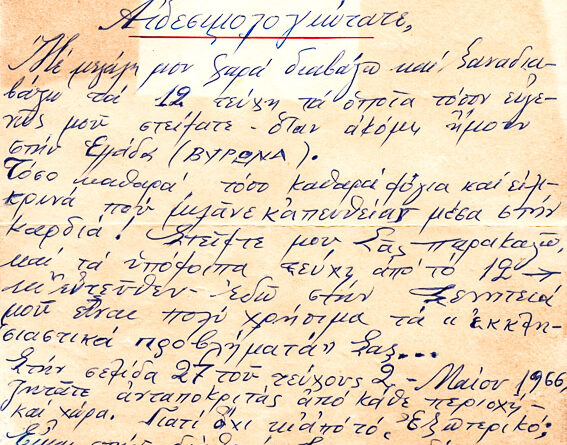 Αἰδεσιμολογιώτατε,
Μέ μεγάλη μου χαρά διαβάζω καί ξαναδια-
βάζω τά 12 τεύχη τά ὁποῖα τόσον εὐγε-
νῶς μοῦ στείλατε - ὅταν ἀκόμη ἤμουν
στήν Ἑλλάδα (ΒΥΡΩΝΑ).
Τόσο καθαρά τόσο καθαρά λόγια καί εἰλι-
κρινά πού μιλᾶνε κατευθείαν μέσα στήν
καρδιά! Στεῖλτε μου Σᾶς παρακαλῶ,
καί τά ὑπόλοιπα τεύχη ἀπό τό 12 →
κι' ἐντεῦθεν - ἐδῶ στήν ξενητειά
μοῦ εἶναι πολύ χρήσιμα τά "ἐκκλη-
σιαστικά προβλήματα" Σας...
Στήν σελίδα 27 τοῦ τεύχους 2 - Μαΐου 1966,
ζητᾶτε ἀνταποκριτάς ἀπό κάθε περιοχή -
καί χώρα. Γιατί ὄχι κι ἀπό τό Ἐξωτερικό;
Εἶμαι στήν